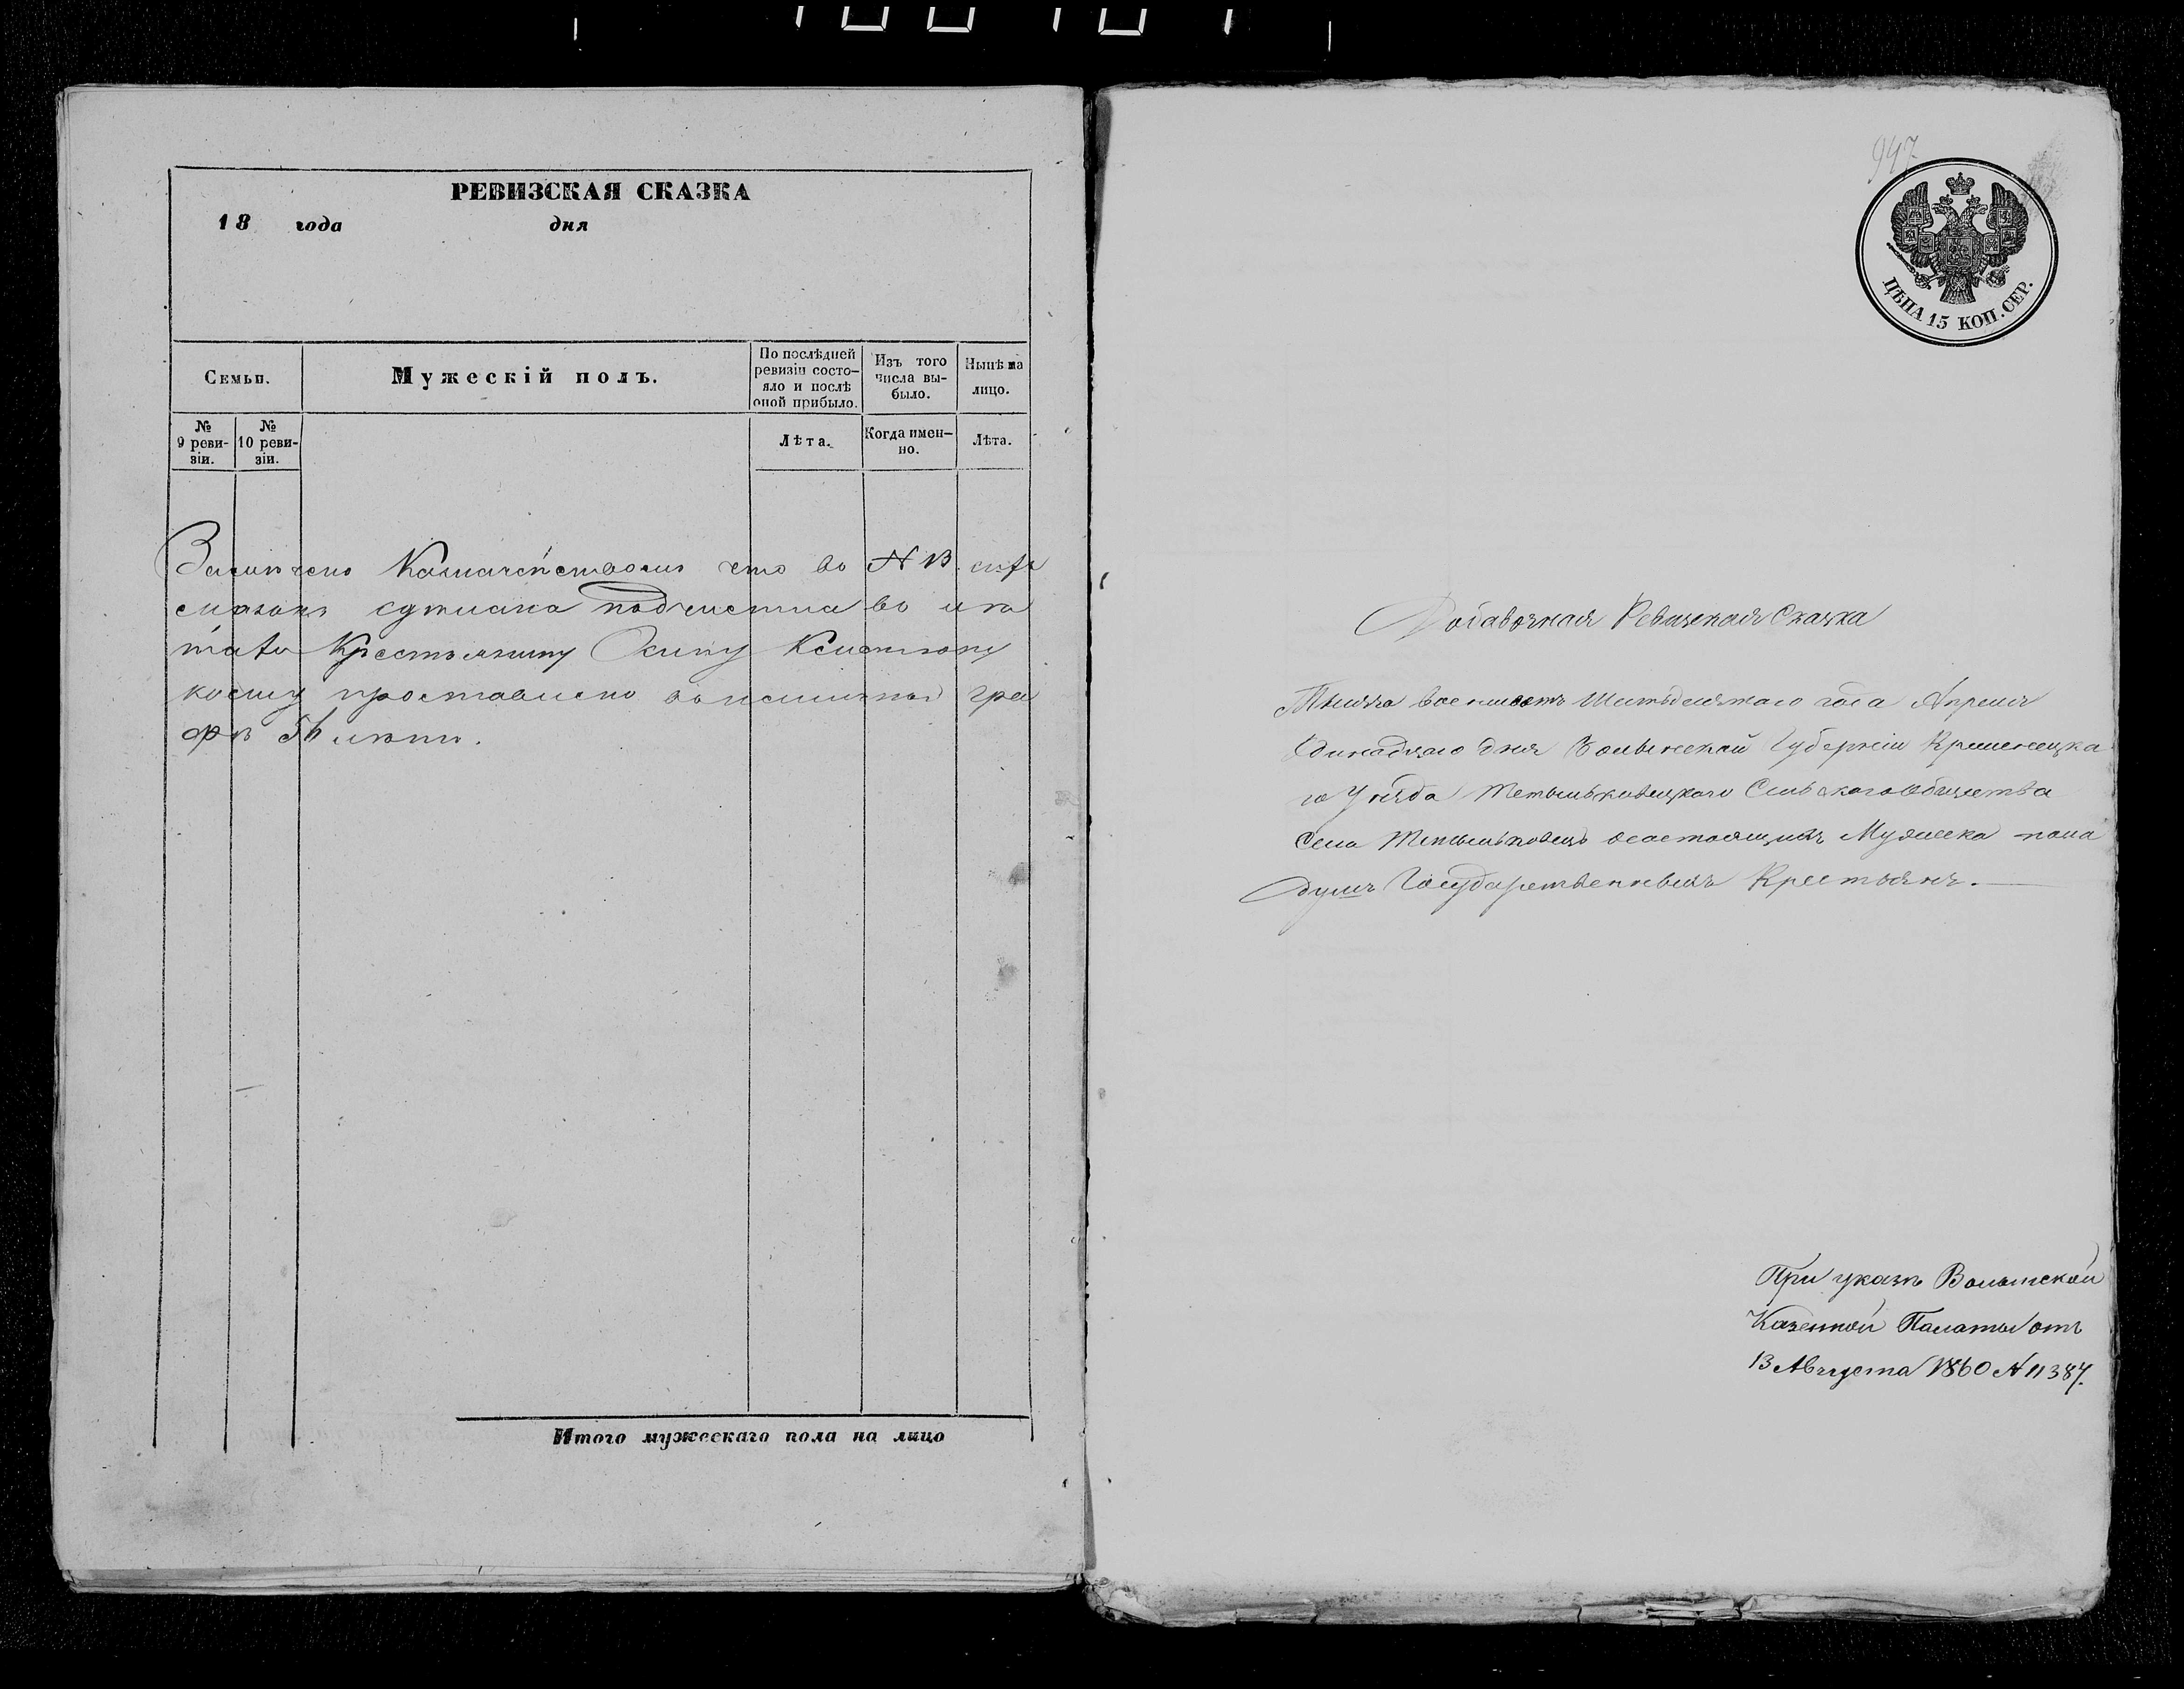 РЕВИЗСКАЯ СКАЗКА
18 года дня
Семьи.
Мужескій полъ.
По послѣдней ревизіи состояло и послѣ оной прибыло.
Изъ того числа выбыло.
Нынѣ на лицо.
№ 9 ревизіи.
№ 10 ревизіи.
Лѣта.
Когда именно.
Лѣта.
что во № 13
сдѣлана подчистка во
Крестьянину Осипу
коему проставлено гра
фѣ 56 лѣтъ.
Итого мужескаго пола на лицо
947
ЦѢНА 15 КОП. СЕР.
Добавочная Ревизская Сказка
Тысяча восемьсотъ Шестьдесятаго года Апреля
дня Волынской Губерніи Кременецка
го Уезда Сельского Общества
Села Мужеска пола
душъ Государственныхъ Крестьянъ.
При указѣ Волынской
Казенной Палаты отъ
13 Августа 1860 № 11387.